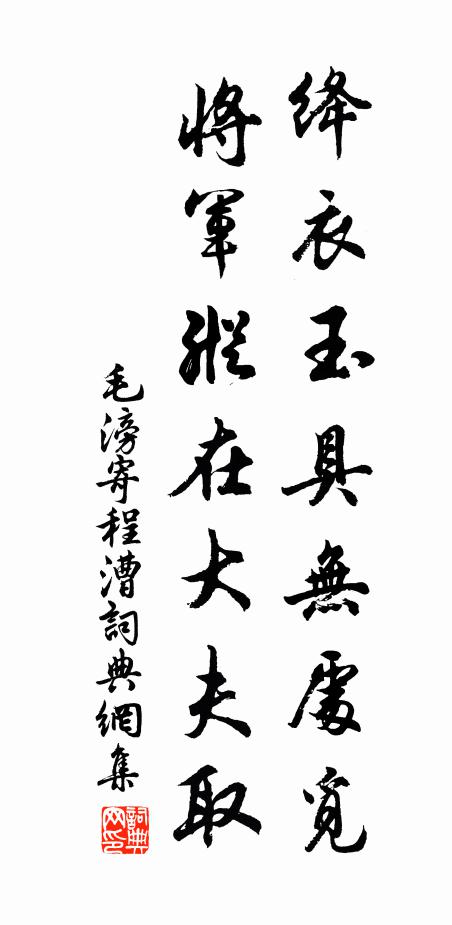 絳衣玉具無處覓
將軍縱在大夫取
毛滂寄程漕詞典網集
詞典网印